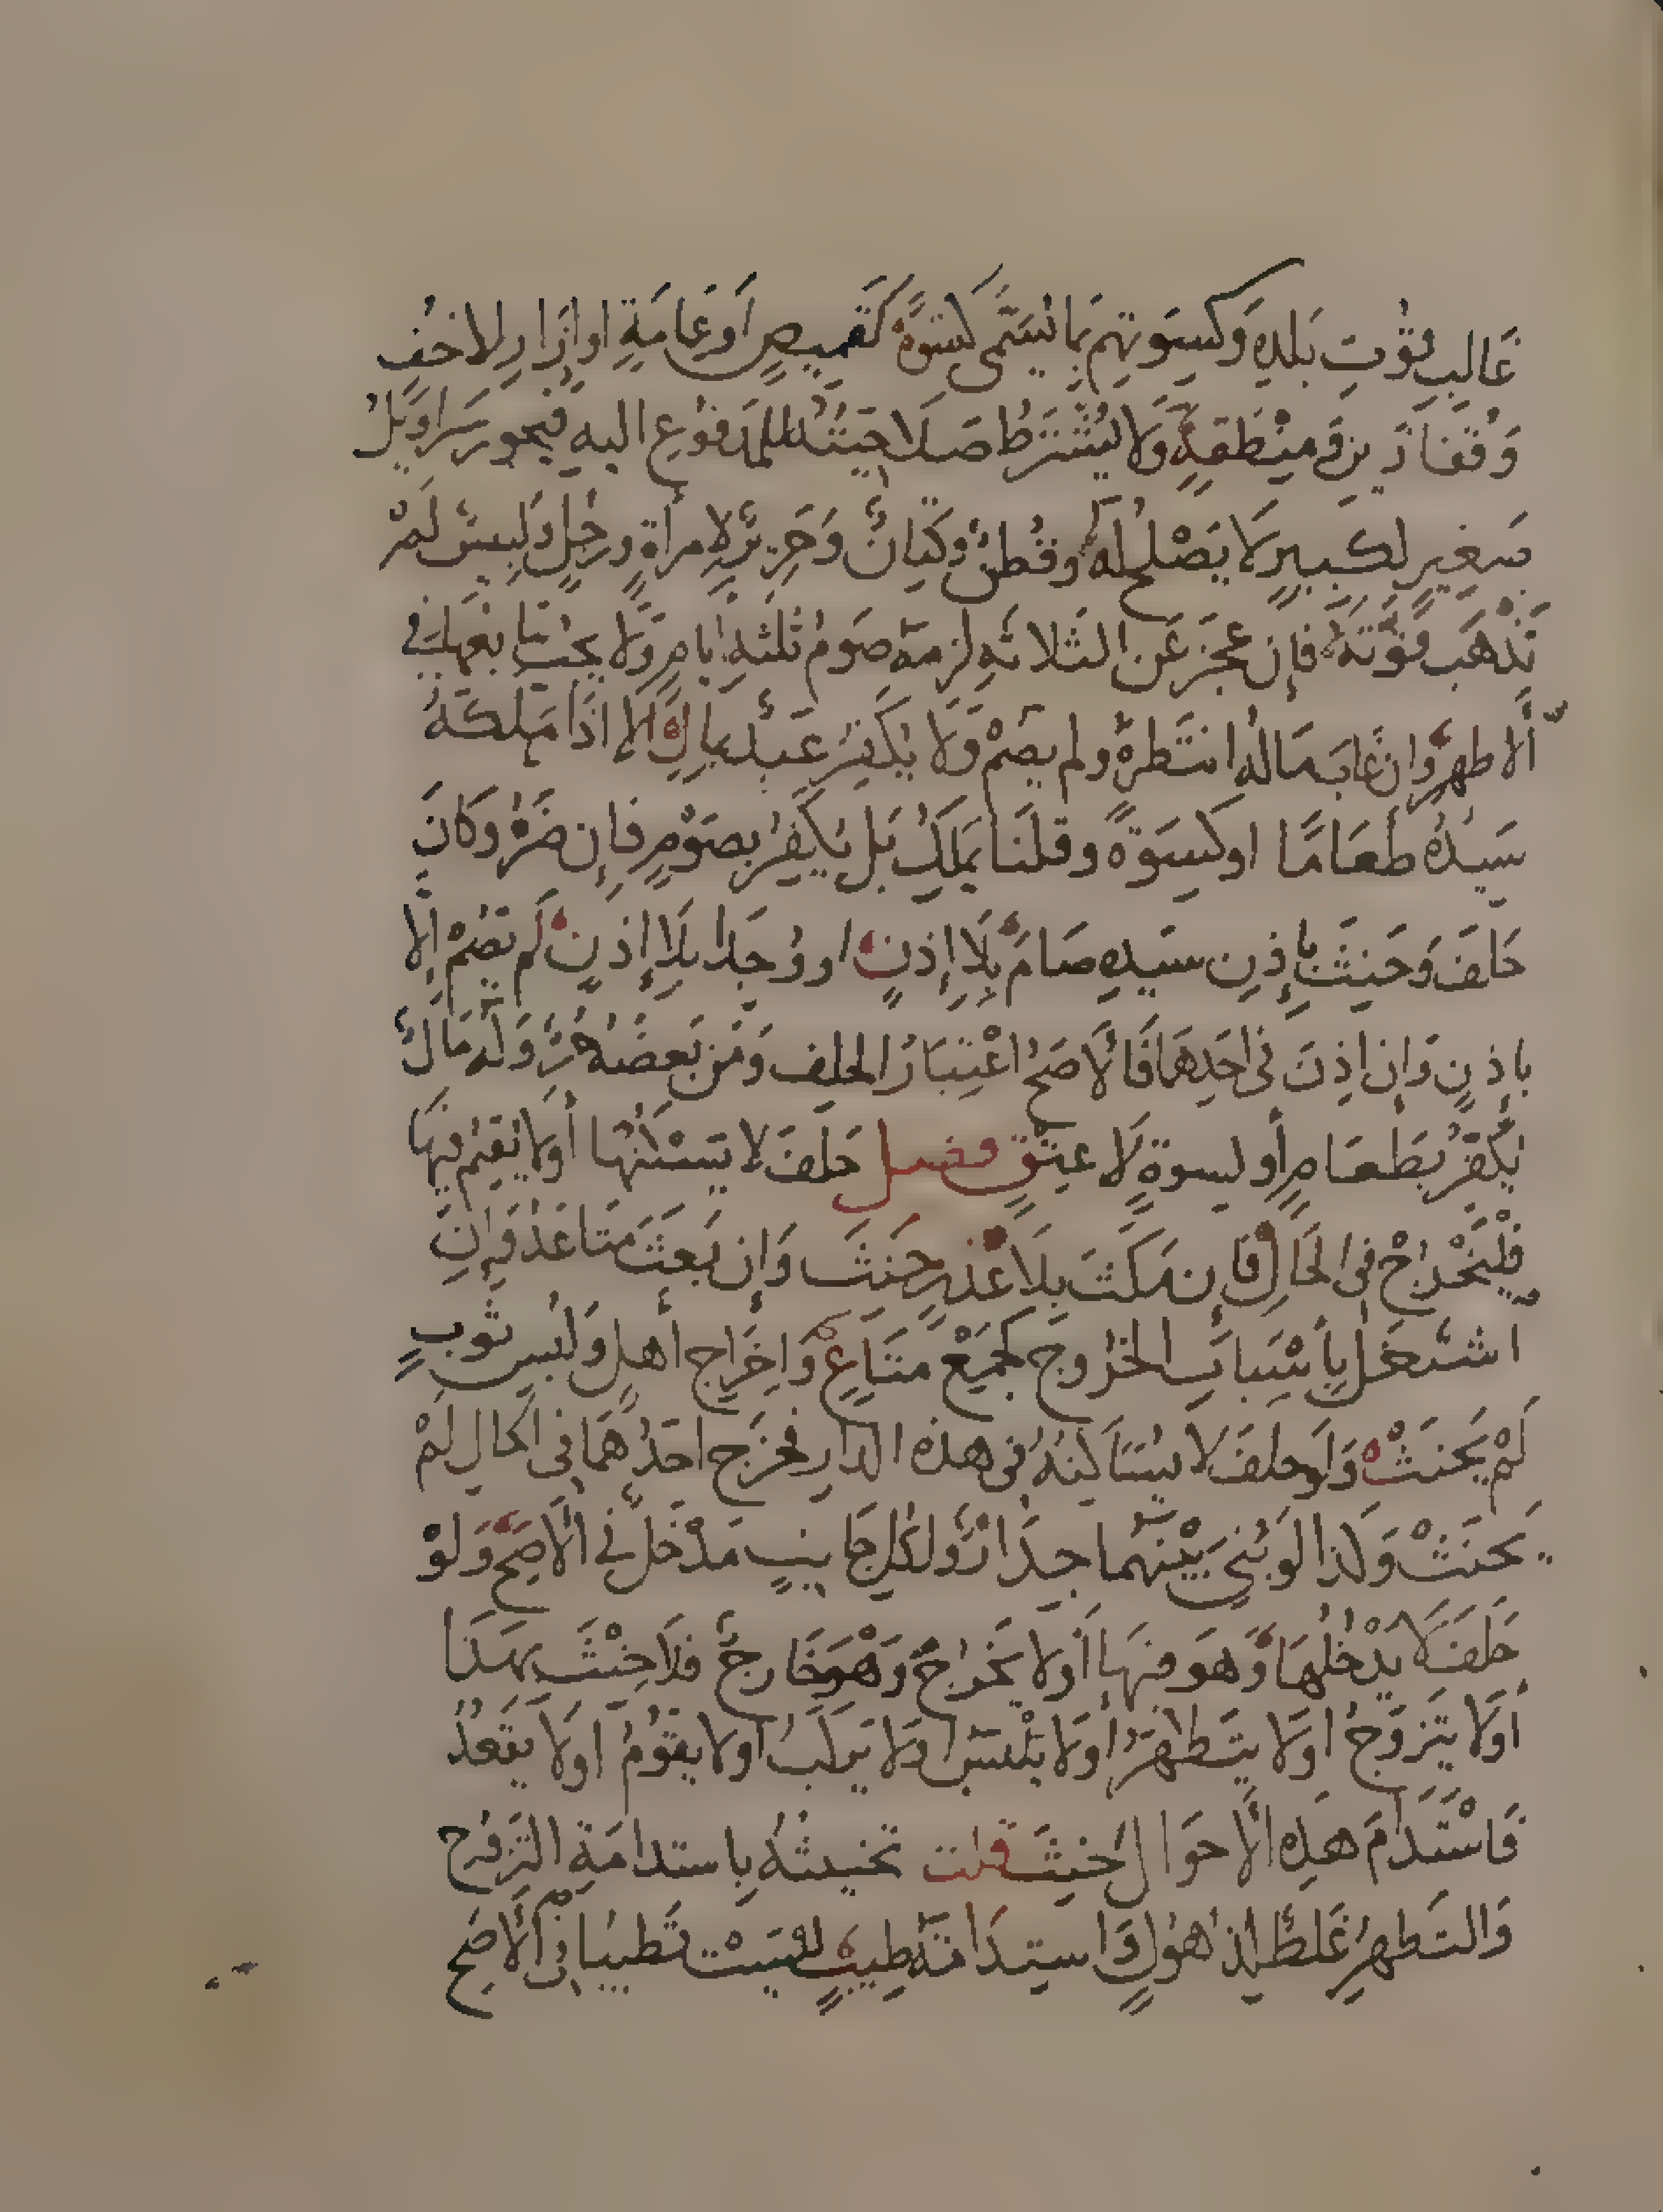 غَالِبِ قُوْتِ بَلَدِهِ وَكِسْوَتِهِمْ بِمَا يُسَمَّى كِسْوَةً كَقَمِيصٍ أَوْ عِمَامَةٍ اوإِزَارٍ لاخُفٍ
وَقُفَّازَينِ وَمِنْطَقَةٍ وَلا يُشْتَرَطُ صَلاحِيَتُهُ لِلمَدفُوْعِ اليهِ فيَجوز سَرَاوِيلُ
صَغِيرٍ لِكَبِيرٍ لَا يَصْلُحُ لهُ وقُطنٌ وَكَتانٌ وَحَرِيرٌ لإمرأةٍ ورجُلٍ وَلَبِيسٌ لَمْ
تَذْهَب قُوَّتهُ فإن عجَزَ عَنِ الثلاثةِ لزمهُ صَومُ ثلثةِ أيامٍ وَلا يجبُ تتابعها في
ألاظهرِ وإن غابَ مَالهُ انتظرهُ ولم يصُمْ وَلا يُكفِّرُ عَبدٌ بمالٍ إلا اذَا مَلكهُ
سَيدُهُ طعَامًا اوكِسوَةً وقلنَا يَملِكُ بَل يُكَفِّرُ بصَوْمٍ فإن ضَرَّهُ وَكانَ
حَلفَ وَحَنِثَ بإِذنِ سَيدِهِ صَامَ بِلَا إذنٍ اووُجِدَا بِلَا إِذنٍ لَم يَصُمْ إلّا
بإذنٍ وَإن اذِنَ في احَدِهمَا فَالأَصَحُّ اعْتِبَارُ الحلِفِ وَمَن بَعضُهُ حُرٌّ وَلَهُ مَالٌ
يُكَفِّرُ بِطَعَامٍ أو كسوةٍ لَا عِتقٍ فصل حَلَفَ لا يَسكُنُها أَولا يُقِيمُ فيهَا
فَلْيَخْرُجْ في الحَالِ فإن مَكَثَ بِلَا عُذرٍ حَنثَ وَإن بَعَثَ مَتَاعَهُ فَإنِ
اشتغَلَ بِأسْبَابِ الخرُوجِ كجَمْعِ مَتَاعٍ وَإخرَاج أهلٍ وَلُبسِ ثَوبٍ
لَمْ يَحنَثْ وَلَو حلفَ لا يُسَاكنُهُ في هذه الدار فخرَج احَدُهمَا في الحال لَمْ
يَحنَثْ وَكذا لَو بُنِيَ بَيْنَهُما جِدَارٌ وَلكلِّ جَانِبٍ مَدْخَلٌ في الأَصَحِّ وَلَوْ
حَلَفَ لَا يَدْخُلُهَا وَهوَ فيهَا أولا يَخرُجُ وَهْوَ خَارِجٌ فلَا حِنْثَ بِهَذَا
أوَلا يَتزوَّجُ اوَلَا يتَطَهَّرُ أَولا يَلْبَسُ اوَلا يَركَبُ اولا يقُومُ اولَا يقعُدُ
فَاسْتَدَامَ هَذِهِ الأحوَالَ حنِثَ قلت تحنيثُهُ باستدامَةِ التَزوُّجِ
وَالتطهُّرِ غلطٌ لِذهُولٍ وَاستِدَامَةُ طِيبٍ لَيسَتْ تَطيبًا في الأَصَحِّ